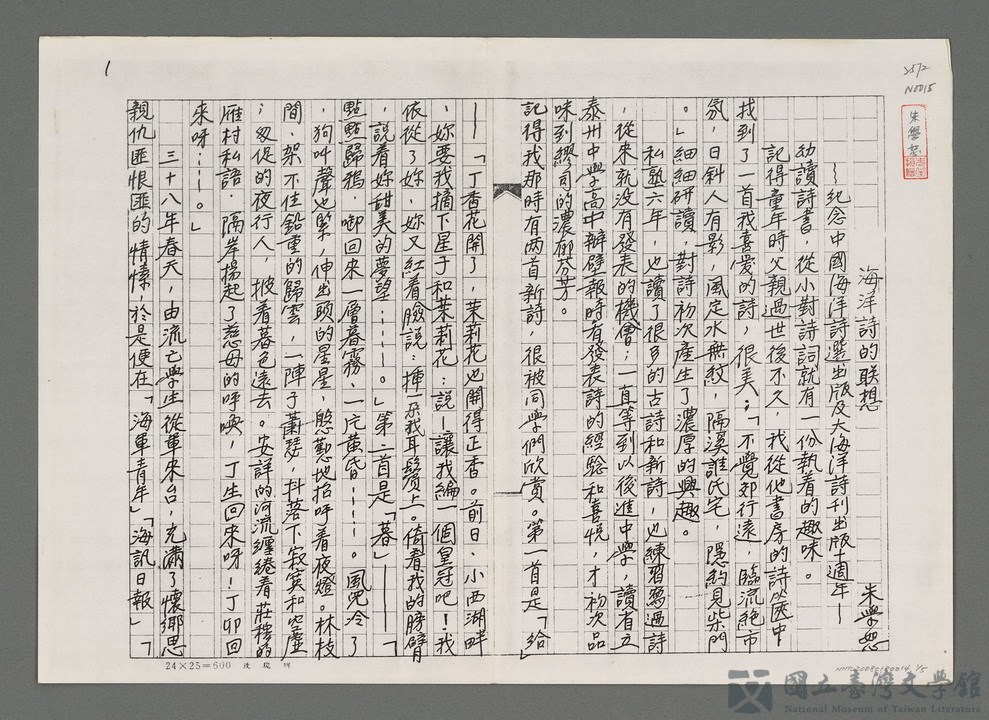 1
海洋詩的联想
朱學恕
—紀念中國海洋詩選出版及大海洋詩刊出版十週年—
幼讀詩書，從小對詩詞就有一份執着的趣味。
記得童年時父親過世後不久，我從他書房的詩箧中
找到了一首我喜愛的詩，很美；「不覺郊行遠，臨流絕市
氛，日斜人有影，風定水無紋，隔溪誰氏宅，隱約見柴門
。」細細研讀，對詩初次產生了濃厚的興趣。
私塾六年，也讀了很多的古詩和新詩，也練習寫過詩
，從來就没有發表的機會；一直等到以後進中學，讀省立
泰州中學高中辦壁報時有發表詩的經驗和喜悅，才初次品
味到繆司的濃郁芬芳。
記得我那時有两首新詩，很被同學們欣賞。第一首是「給」
——「丁香花開了，茉莉花也開得正香。前日，小西湖畔
，妳要我摘下星子和茉莉花：說—讓我編一個皇冠吧！我
依從了妳，妳又紅着臉說：揷一朵我耳鬢上。倚着我的膀臂
，說着妳甜美的夢望……。」第二首是「暮」——「
點點歸鴉，啣回來一層暮霧、一片黄昏……。風兒冷了
，狗叫聲也緊，伸出頭的星星，慇懃地招呼着夜燈。林枝
間，架不住鉛重的歸雲，一陣子蕭瑟，抖落下寂寞和空虛
；匆促的夜行人，披着暮色遠去。安詳的河流纏綣着莊穆的
雁村私語，隔岸揚起了慈母的呼喚，丁生回來呀！丁卯回
來呀……。」
三十八年春天，由流亡學生從軍來台，充滿了懷鄉思
親仇匪恨匪的情愫，於是便在「海軍青年」「海訊日報」「
24×25=600
朱學恕
N0015
國立臺灣文學館
National Museum of Taiwan Literature